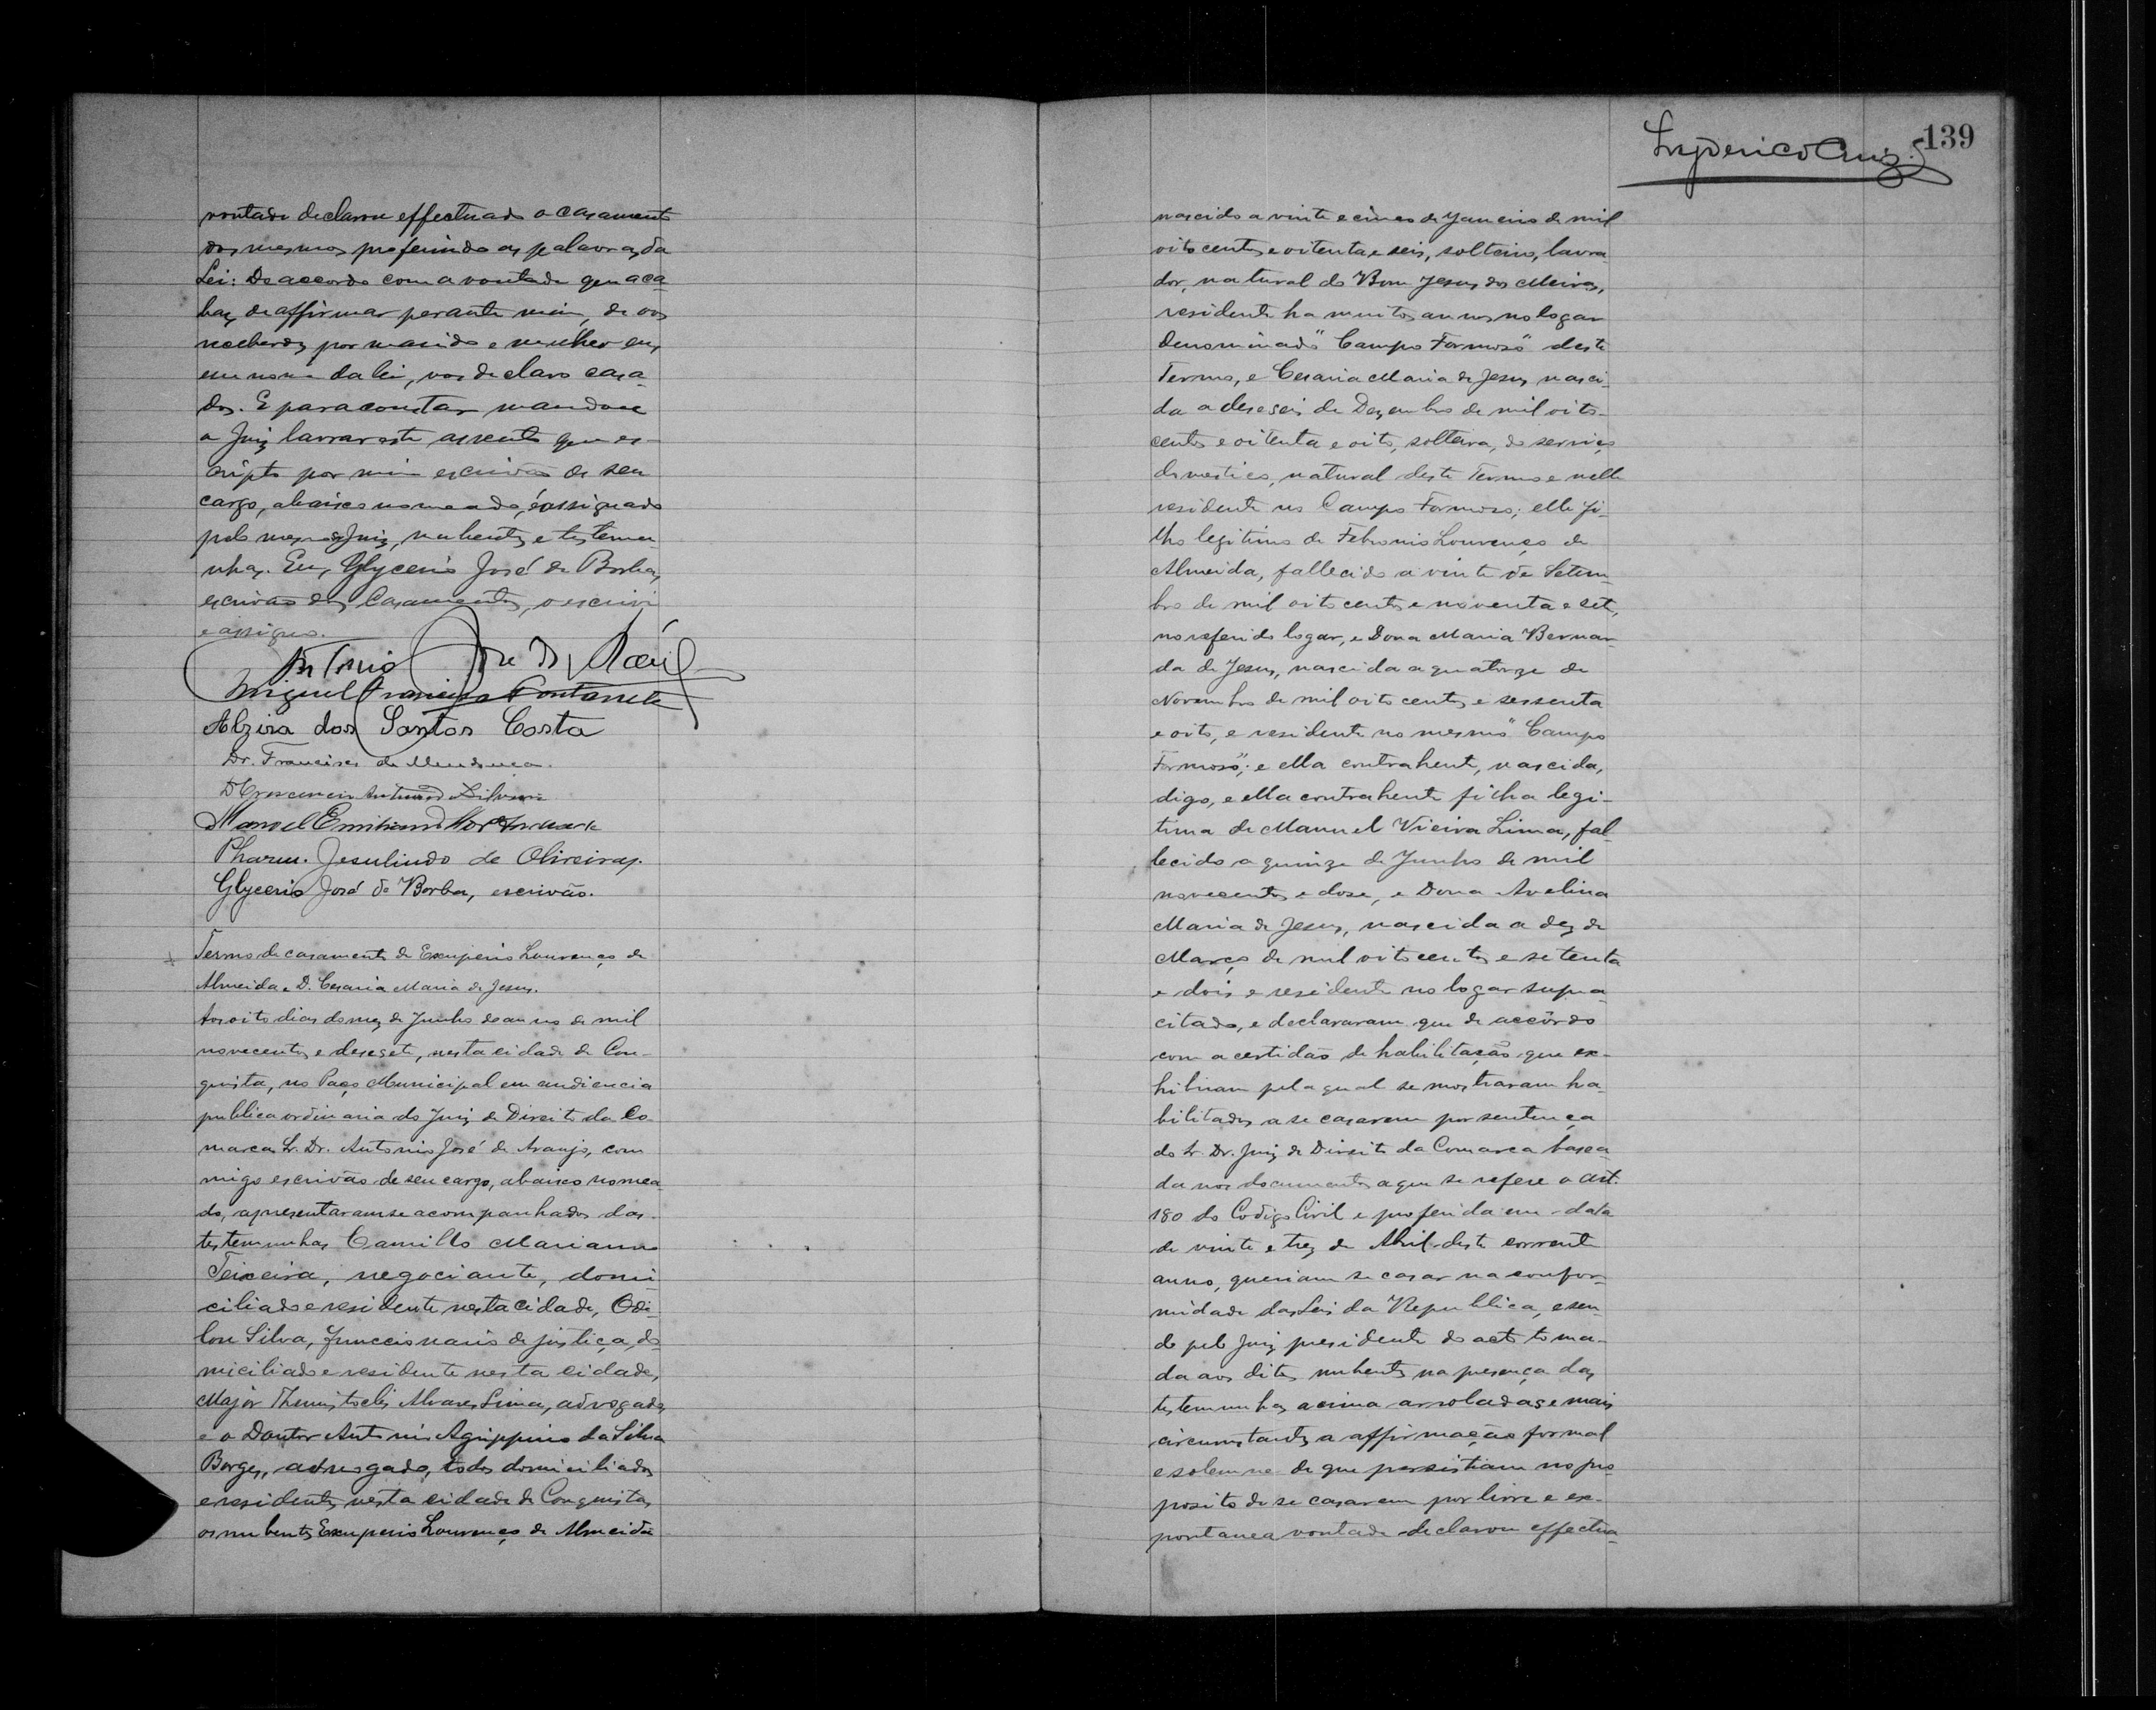 vontade declarou effectuado o casamento
dos mesmos proferindo as palavras da
Lei: De accordo com a vontade que aca-
baes de affirmar perante mim, de vos
receberdes por marido e mulher eu,
em nome da lei, vos declaro casa-
dos. E para constar mandou
o Juiz lavrar este assento que es-
cripto por mim escrivão de seu
cargo, abaixo nomeado, é assignado
pelo mesmo Juiz, nubentes e testemu-
nhas. Eu, Glycerio José de Borba,
escrivão dos Casamentos, o escrivi
e assigno.
Antonio José de Araújo
Miguel Francisco
Alzira dos Santos Costa
Dr. Francisco de Mendonça.
Manoel Emiliano
Pharm. Jesulindo de Oliveira.
Glycerio José de Borba, escrivão.
Termo de casamento de Exuperio Lourenço de
Almeida e D. Cesaria Maria de Jesus.
Aos oito dias do mez de Junho do anno de mil
novecentos e desesete, nesta cidade de Con-
quista, no Paço Municipal em audiencia
publica ordinaria do Juiz de Direito da Co-
marca Sr. Dr. Antonio José de Araujo, com-
migo escrivão de seu cargo, abaixo nomea-
do, apresentaram se acompanhados das
testemunhas Camillo Marianno
Teixeira, negociante, domi-
ciliado e residente nesta cidade, Odi-
lon Silva, funccionario de justiça, do-
miciliado e residente nesta cidade,
Major Themistocles Alvares Lima, advogado,
e o Doutor Antonio Agrippino da Silva
Borges, advogado, todos domiciliados
e residentes nesta cidade de Conquista,
os nubentes Exuperio Lourenço de Almeida
139
nascido a vinte e cinco de Janeiro de mil
oito centos e oitenta e seis, solteiro, lavra-
dor, natural do Bom Jesus dos Meiras,
residente ha muitos annos no logar
denominado "Campo Formoso" deste
Termo, e Cesaria Maria de Jesus nasci-
da a deseseis de Dezembro de mil oito-
centos e oitenta e oito, solteira, do serviço
domestico, natural deste Termo e nelle
residente no Campo Formoso; elle fi-
lho legitimo de Febronio Lourenço de
Almeida, fallecido a vinte de Setem-
bro de mil oito centos e noventa e sete,
no referido logar, e Dona Maria Bernar-
da de Jesus, nascida a quatorze de
Novembro de mil oito centos e sessenta
e oito, e residente no mesmo "Campo
Formoso"; e ella contrahente, nascida,
digo, e ella contrahente filha legi-
tima de Manuel Vieira Lima, fal-
lecido a quinze de Junho de mil
novecentos e dose, e Dona Avelina
Maria de Jesus, nascida a dez de
Março de mil oito centos e setenta
e dois e residente no logar supra-
citado, e declararam que de accôrdo
com a certidão de habilitação que ex-
hibiram pela qual se mostraram ha-
bilitados a se casarem por sentença
do Sr. Dr. Juiz de Direito da Comarca basea-
da nos documentos a que se refere o art.
180 do Codigo Civil e proferida em data
de vinte e trez de Abril deste corrente
anno, queriam se casar na confor-
midade das Leis da Republica, e sen-
do pelo Juiz presidente do acto toma-
da aos ditos nubentes na presença das
testemunhas acima arroladas e mais
circumstantes a affirmação formal
e solemne de que persistiam no pro-
posito de se casarem por livre e ex-
pontanea vontade declarou effectua-